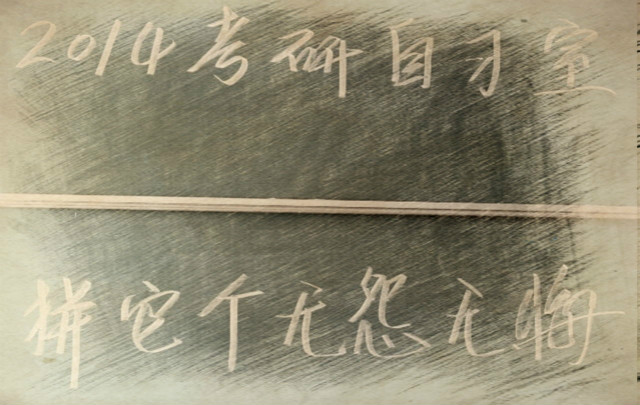 2014考研自习室
拼它个无怨无悔